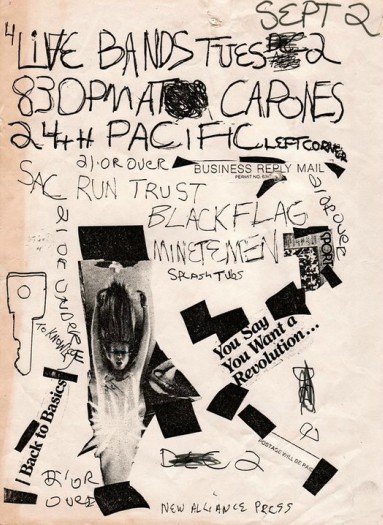 SEPT 2
4
LiVE BANDS TUES 2
830PM AT CAPONES
24tH PACIFIC LEFT CORNER
21·OR OVER
BUSINESS REPLY MAIL
SAC RUN TRUST
BLACK FLAG
MINETEMEN
SPLASH TUBS
21 OR OVER
SPORT
21 OR UNDER
TO KNOW
You Say
You Want a
Revolution...
Back to Basics
POSTAGE WILL BE PAID
2
21·OR
OVER
NEW ALLIANCE PRESS